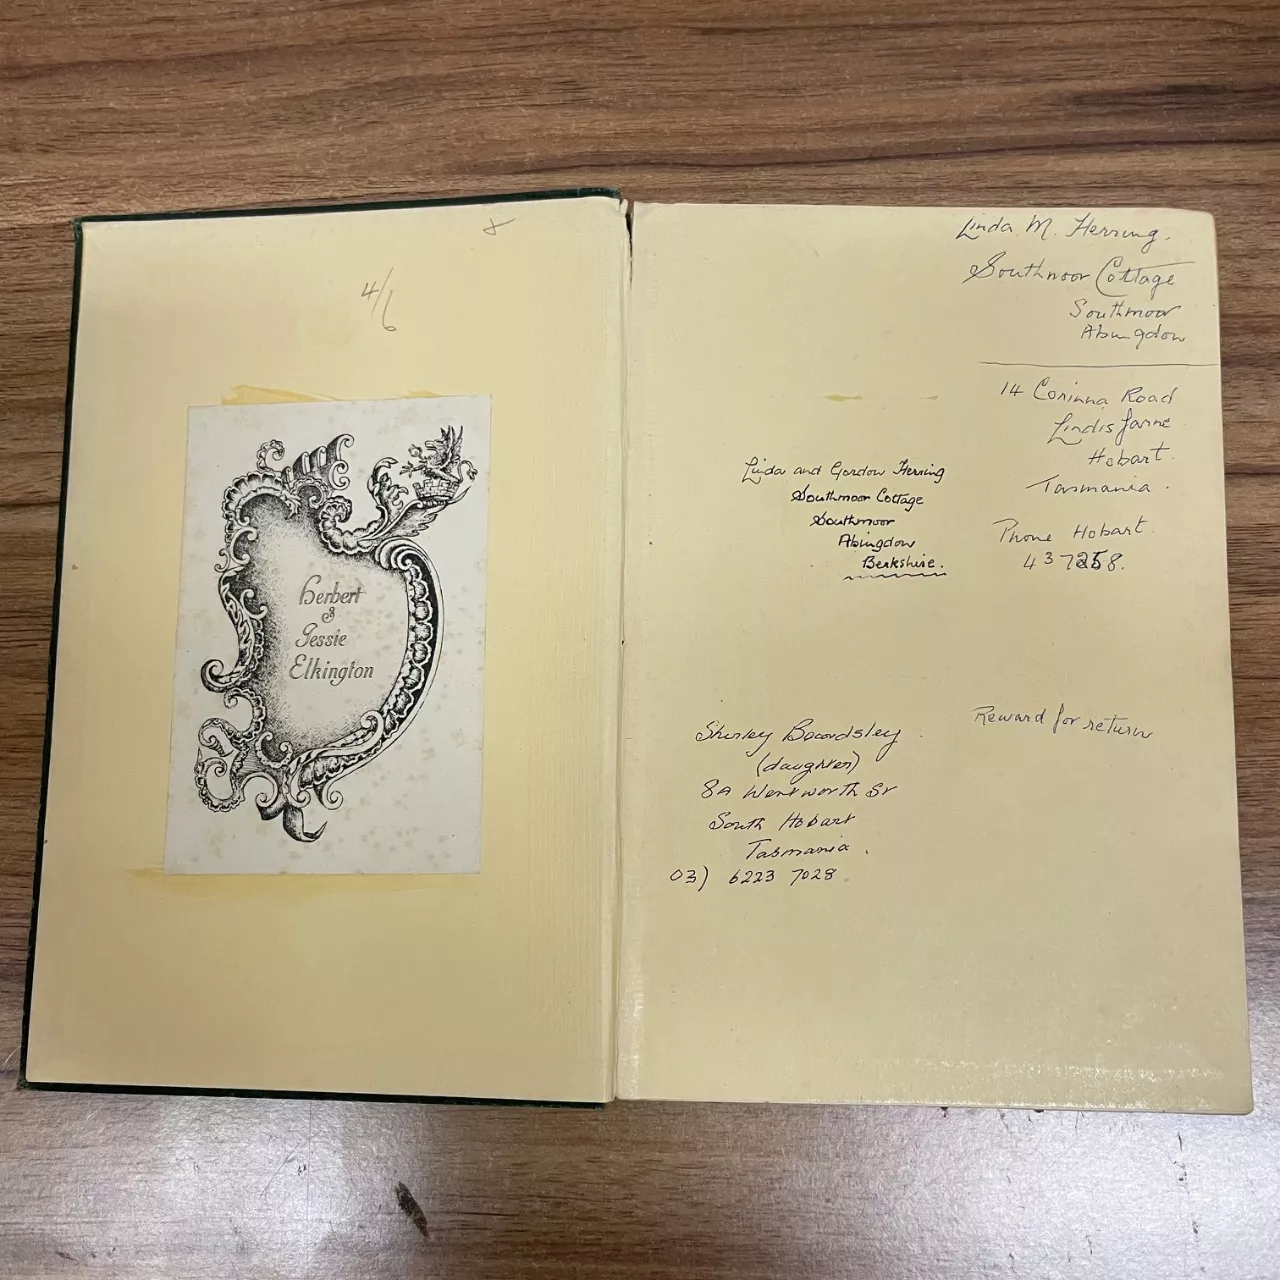 4/6
Herbert
&
Jessie
Elkington
Linda. M. Herring.
Southmoor Cottage
Southmoor
Abingdon
14 Corinna Road
Lindisfarne
Hobart.
Tasmania.
Phone Hobart.
437258.
Linda and Gordon Herring
Southmoor Cottage
Southmoor
Abingdon
Berkshire.
Reward for return
Shirley Beardsley
(daughter)
8A Wentworth St
South Hobart
Tasmania.
03) 6223 7028